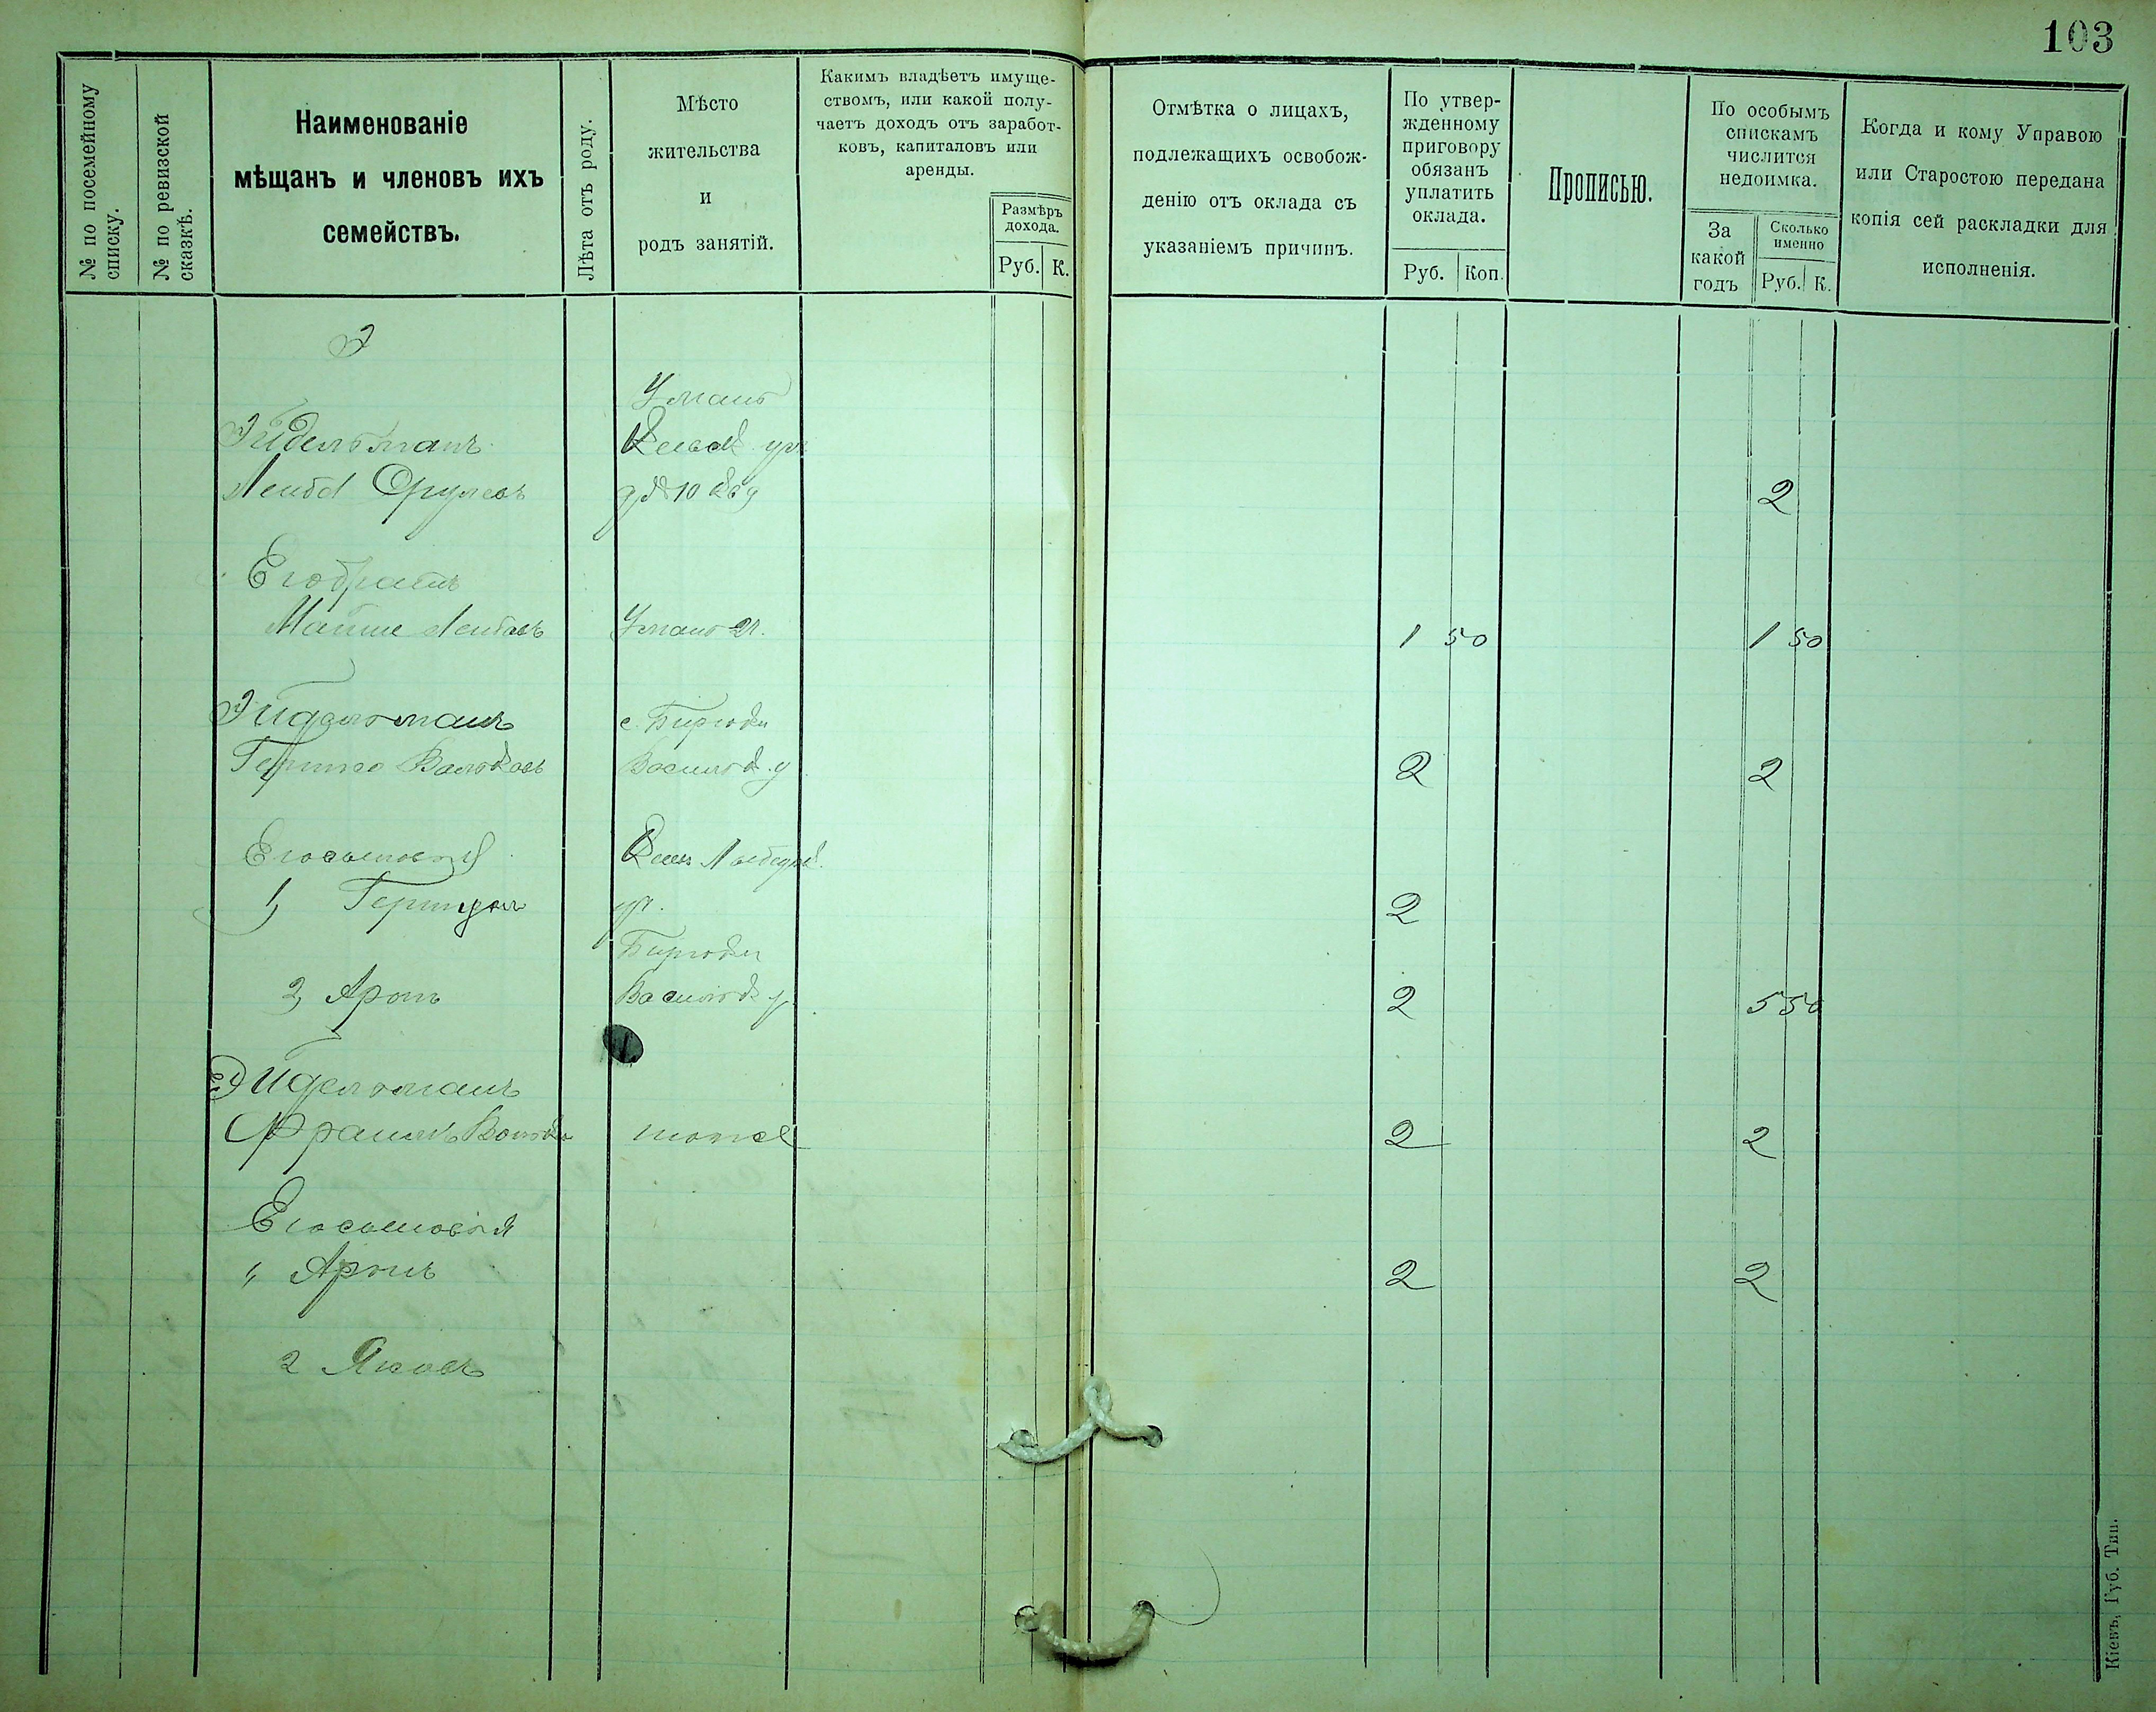 103
№ по посемейному
списку.
№ по ревизской
сказкѣ.
Наименованіе
мѣщанъ и членовъ ихъ
семействъ.
Лѣта отъ роду.
Мѣсто
жительства
и
родъ занятій.
Какимъ владѣетъ имуще-
ствомъ, или какой полу-
чаетъ доходъ отъ заработ-
ковъ, капиталовъ или
аренды.
Размѣръ
дохода.
Руб. К.
Отмѣтка о лицахъ,
подлежащихъ освобож-
денію отъ оклада съ
указаніемъ причинъ.
По утвер-
жденному
приговору
обязанъ
уплатить
оклада.
Руб. Коп.
Прописью.
По особымъ
спискамъ
числится
недоимка.
За
какой
годъ
Сколько
именно
Руб. К.
Когда и кому Управою
или Старостою передана
копія сей раскладки для
исполненія.
Э
Умань
Эйдельманъ
Лейба Срулевъ 2
Его братъ
Мойше Лейбовъ Умань 1 50 1 50
Эйдельманъ с. Бирюки
Гершко Васильк. у 2 2
Его сыновья
1) 2
Бирюки
2) Аронъ Васильк у 2 5 50
Эйдельманъ
тоже 2 2
Его сыновья
" Аронъ 2 2
2 Яковъ
Кіевъ, Губ. Тип.